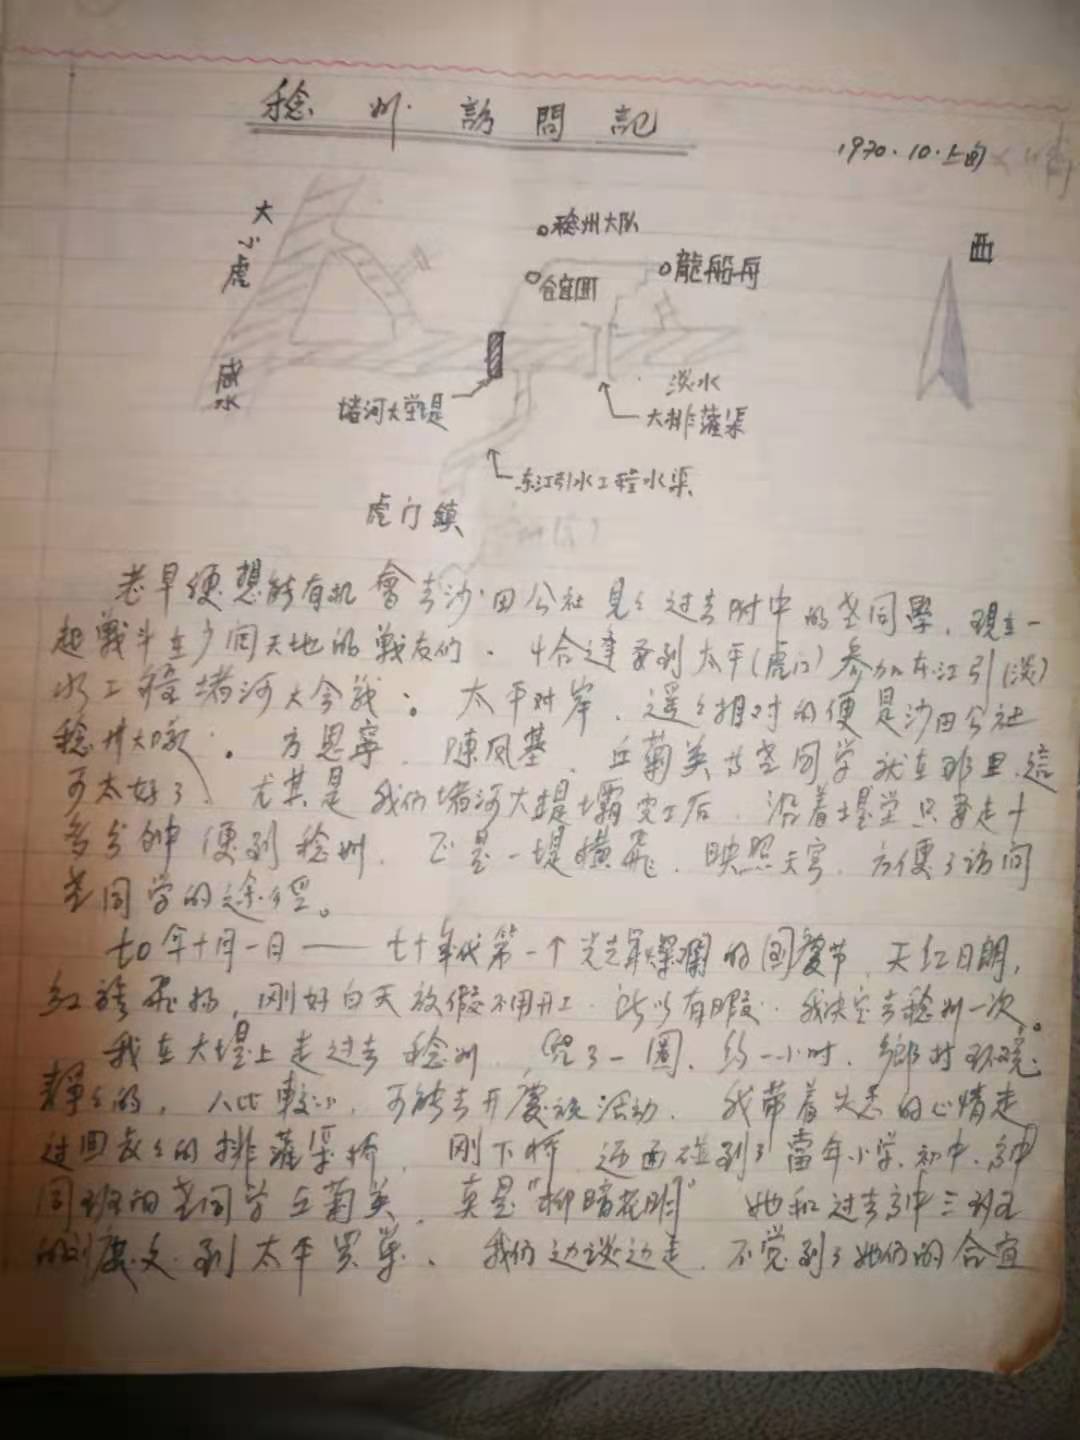 稔州訪問記
1970.10.上旬
大小虎
咸水
稔州大队
合宜囲
龍船舟
西
堵河大堂堤
淡水
大排灌渠
东江引水工程水渠
虎门鎮
老早便想能有机會去沙田公社見々过去附中的老同學，現在一
起戰斗在广阔天地的戰友们。恰逢到太平(虎门)参加东江引(淡)
水工程堵河大会战。太平对岸，遥々相对的便是沙田公社
稔州大队。方思寧、陳凤基、丘菊英等老同学就在那里，這
可太好了，尤其是我们堵河大堤壩完工后，沿着堤堂只要走十
多分钟便到稔州，正是一堤横飛，映照天穹，方便了访问
老同学的途径。
七0年十月一日——七十年代第一个光輝燦爛的國慶节，天红日朗，
红旗飛扬，刚好白天放假不用开工，所以有暇，我决定去稔州一次。
我在大堤上走过去稔州，兜了一圈，约一小时，鄉村环境
靜々的，人比較少，可能去开慶祝活动，我带着失意的心情走
过回來的排灌渠桥，刚下桥，迎面碰到了當年小学、初中、高中
同班的老同学丘菊英，真是"柳暗花明" 她和过去高中三班
的慶文到太平买菜，我们边谈边走，不觉到了她们的合宜